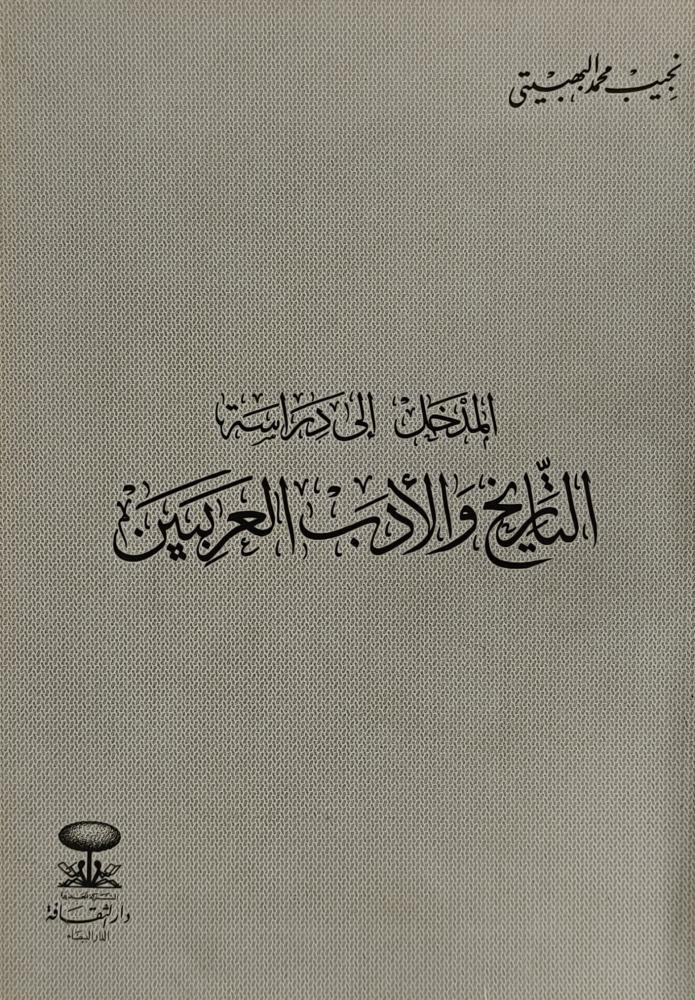 نجيب محمد البهبيتي
المدْخَلْ إلى دِرَاسَة
التَّاريخ وَالأدَبْ العَرَبيَين
دار الثقافة
الدار البيضاء